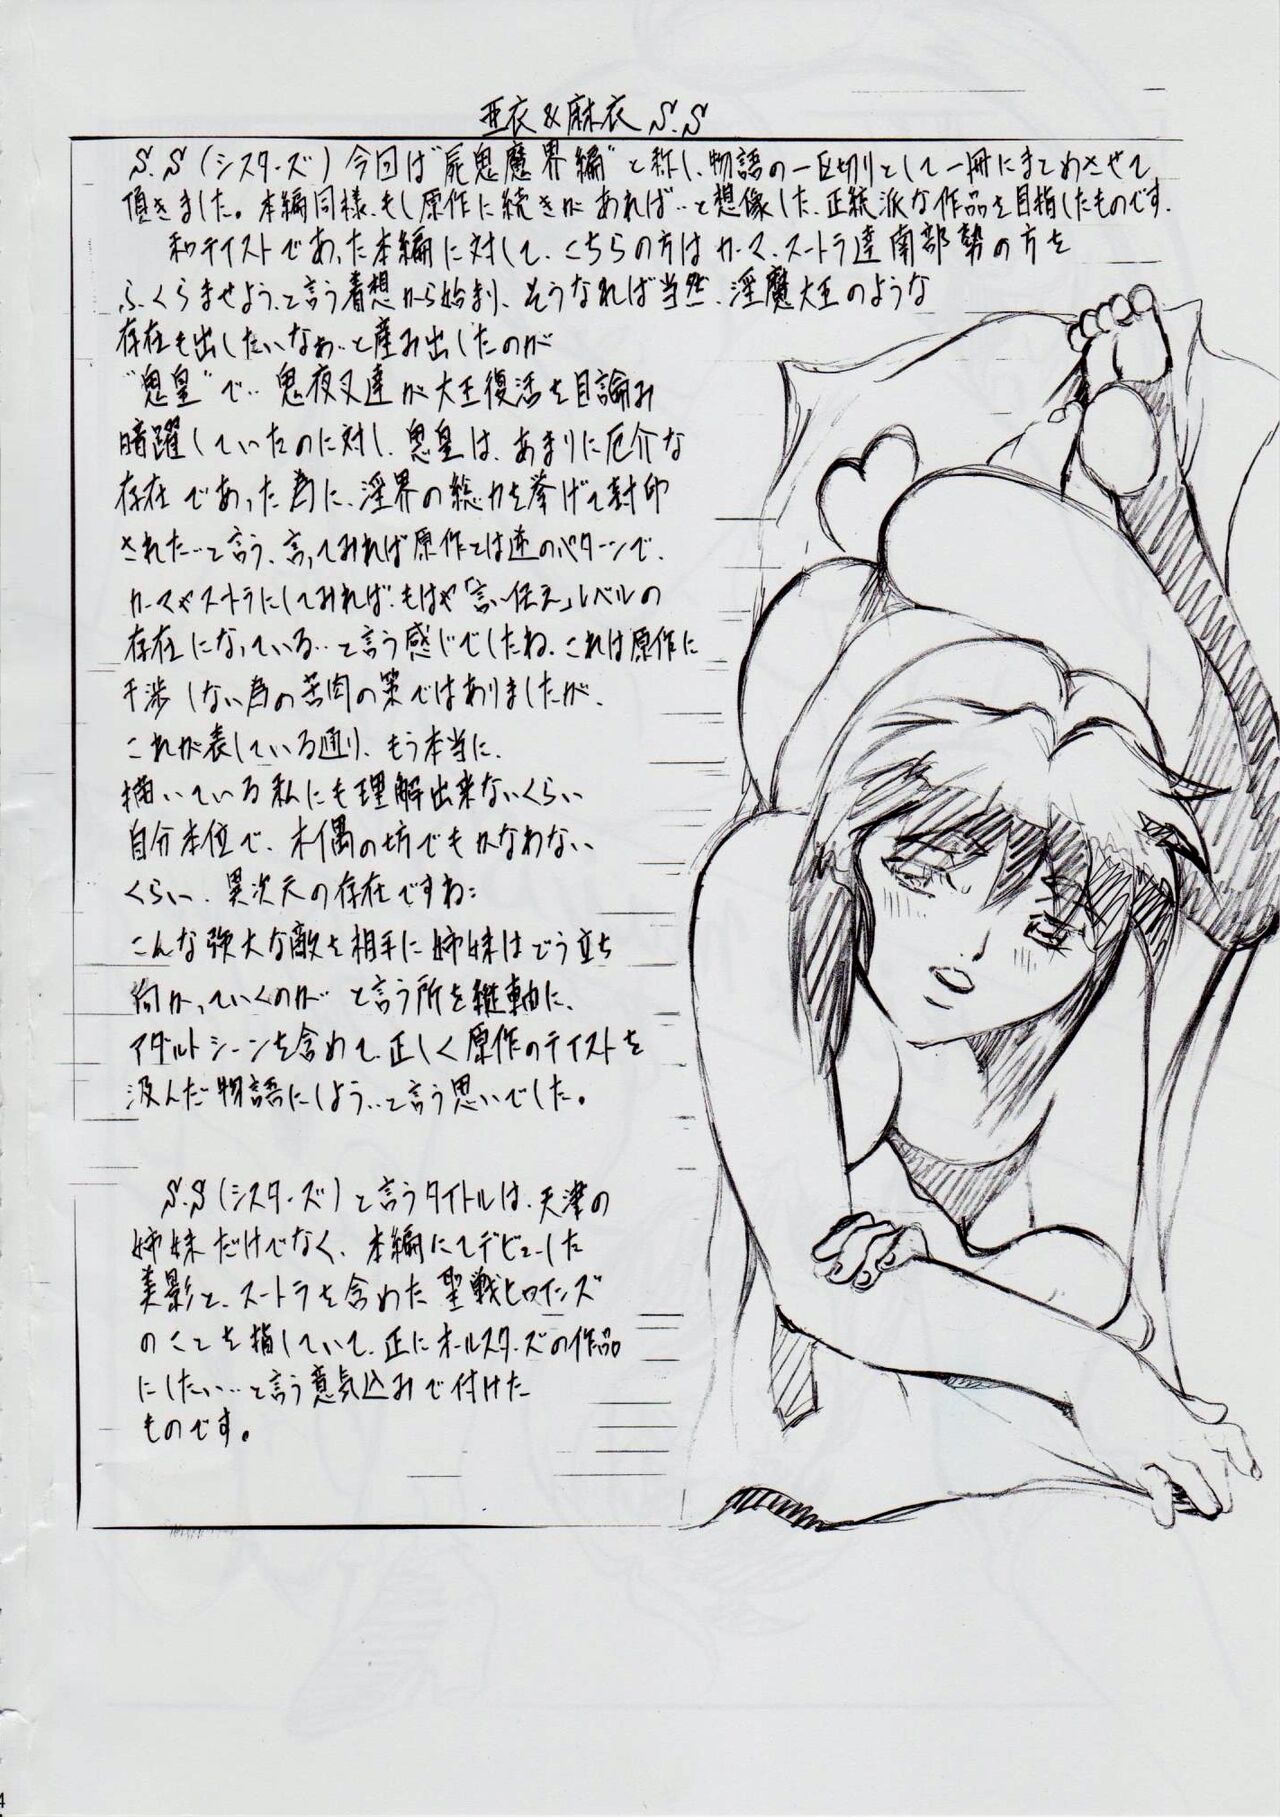 亜衣&麻衣 S.S
S.S(シスターズ)今回は"屍鬼魔界編"と称し、物語の一区切りとして一冊にまとめさせて
頂きました。本編同様、もし原作に続きがあれば‥と想像した、正統派な作品を目指したものです。
和テイストであった本編に対して、こちらの方はカーマ、スートラ達南部勢の方を
ふくらませよう、と言う着想から始まり、そうなれば当然、淫魔大王のような
存在も出したいなぁ‥と産み出したのが
"鬼皇"で‥鬼夜叉達が大王復活を目論み
暗躍していたのに対し、鬼皇は、あまりに厄介な
存在であった為に、淫界の総力を挙げて封印
された‥と言う、言ってみれば原作とは逆のパターンで、
カーマやスートラにしてみれば、もはや「言い伝え」レベルの
存在になっている‥と言う感じでしたね、これは原作に
干渉しない為の苦肉の策ではありましたが、
これが表している通り、もう本当に、
描いている私にも理解出来ないくらい
自分本位で、木偶の坊でもかなわない
くらい、異次元の存在ですね:
こんな強大な敵を相手に姉妹はどう立ち
向かっていくのか と言う所を縦軸に、
アダルトシーンを含めて、正しく原作のテイストを
汲んだ物語にしよう‥と言う思いでした。
S.S(シスターズ)と言うタイトルは、天津の
姉妹だけでなく、本編にてデビューした
美影と、スートラを含めた聖戦ヒロインズ
のことを指していて、正にオールスターズの作品
にしたい‥と言う意気込みで付けた
ものです。